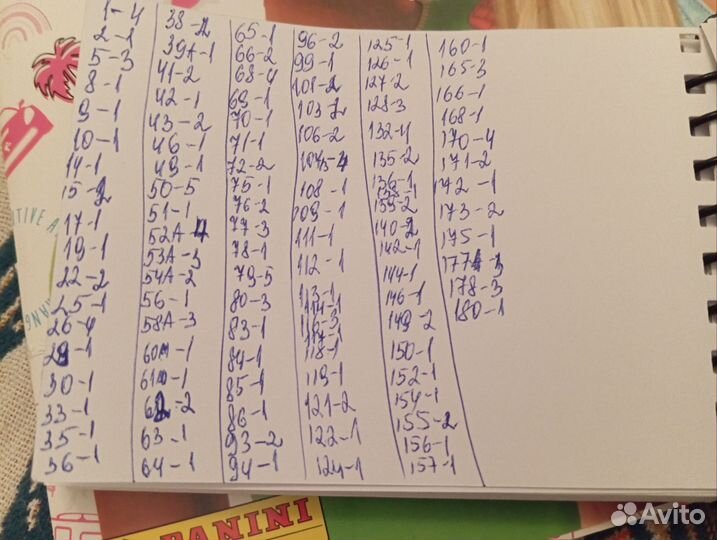 1-4
2-1
5-3
8-1
9-1
10-1
14-1
15-2
17-1
19-1
22-2
25-1
26-4
30-1
33-1
35-1
36-1
38-2
39A-1
41-2
42-1
43-2
46-1
49-1
50-5
51-1
52A-4
53A-3
54A-2
56-1
58A-3
60A-1
62-2
63-1
64-1
65-1
66-2
68-4
69-1
70-1
71-1
72-2
75-1
76-2
77-3
78-1
79-5
80-3
83-1
84-1
85-1
86-1
93-2
94-1
96-2
99-1
101-2
103-2
106-2
108-1
109-1
111-1
112-1
113-1
114-1
118-1
119-1
121-2
122-1
124-1
125-1
126-1
127-2
128-3
132-4
135-2
136-1
140-2
142-1
144-1
146-1
149-2
150-1
152-1
154-1
155-2
156-1
157-1
160-1
165-3
166-1
168-1
170-4
171-2
172-1
173-2
175-1
178-3
180-1
PANINI
Avito